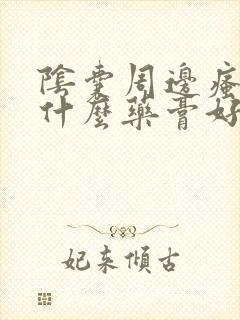 陰囊周邊瘙
什麼藥膏好
妃来傾古